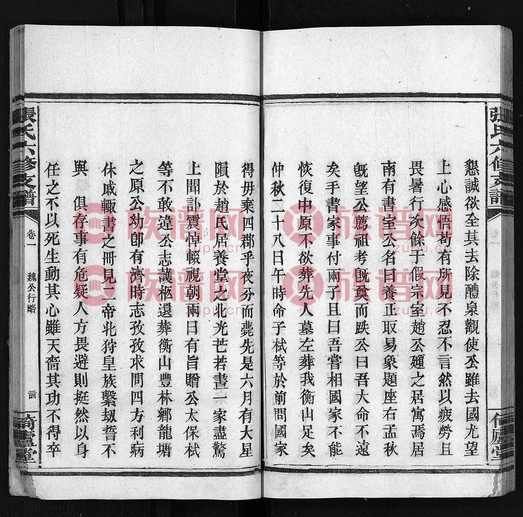 張氏六修支譜
懇誠欲全其去除醴泉觀使公雖去國尤望
上心感悟苟有所見不忍不言然以疲勞且
畏暑行次餘干假宗室趙公頲之居寓焉居
南有書室公名曰養正取易象題座右孟秋
既望公薦祖考既奠而跌公曰吾大命不遠
矣一日手書家事付兩子且曰吾嘗相國家不能
恢復中原不欲葬先人墓左葬我衡山足矣
仲秋二十八日午時命子栻等於前問國家
得毋棄四郡乎夜分而薨先是六月有大星
隕於趙氏居養堂之北光芒若晝一家盡驚
上聞訃震悼輟視朝兩日有旨贈公太保栻
等不敢違公志護柩還葬衡山豐林鄉龍塘
之原公幼即有濟時志孜孜求問四方利病
休戚輒書之冊見二帝北狩皇族繫刼誓不
與 俱存事有危疑人方畏避則挺然以身
任之不以死生動其心雖天嗇其功不得卒
張氏六修支譜
卷一
魏公行略
倚廬堂
族谱网
zupu.cn